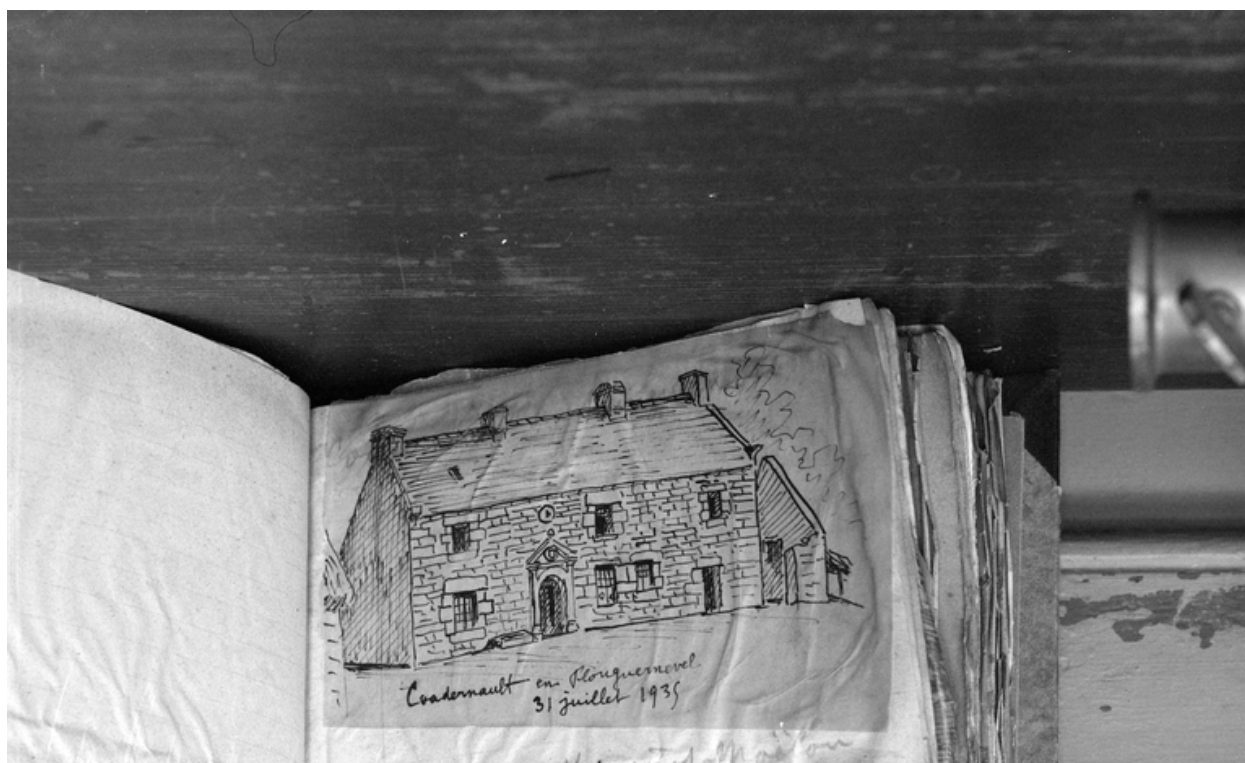 Coadernault en Plouguernevel
31 juillet 1935